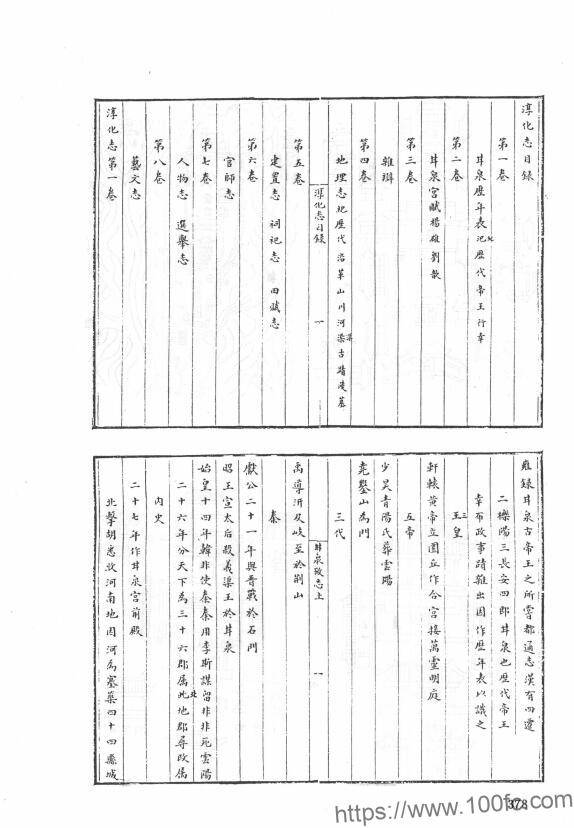 淳化志目錄
第一卷
甘泉歷年表紀歷代帝王行幸
第二卷
甘泉宮賦楊雄劉歆
第三卷
雜辯
第四卷
地理志紀歷代沿革山川河渠古蹟陵墓
淳化志目錄
一
第五卷
建置志 祠祀志 田賦志
第六卷
官師志
第七卷
人物志 選舉志
第八卷
藝文志
淳化志第一卷
雍錄甘泉古帝王之所嘗都通志漢有四還
二櫟陽三長安四即甘泉也歷代帝王
幸布政事蹟雜出因作歷年表以識之
三皇
軒轅黃帝立圜丘作合宮接萬靈明庭
五帝
少昊青陽氏葬雲陽
堯鑿山為門
三代
甘泉政志上
一
禹導汧及岐至於荆山
秦
獻公二十一年與晋戰於石門
昭王宣太后殺義渠王於甘泉
始皇十四年韓非使秦秦用李斯謀留非非死雲陽
二十六年分天下為三十六郡屬北地郡尋改屬
內史
二十七年作甘泉宮前殿
北擊胡悉收河南地因河為塞築四十四縣城
378
https://www.100fz.com